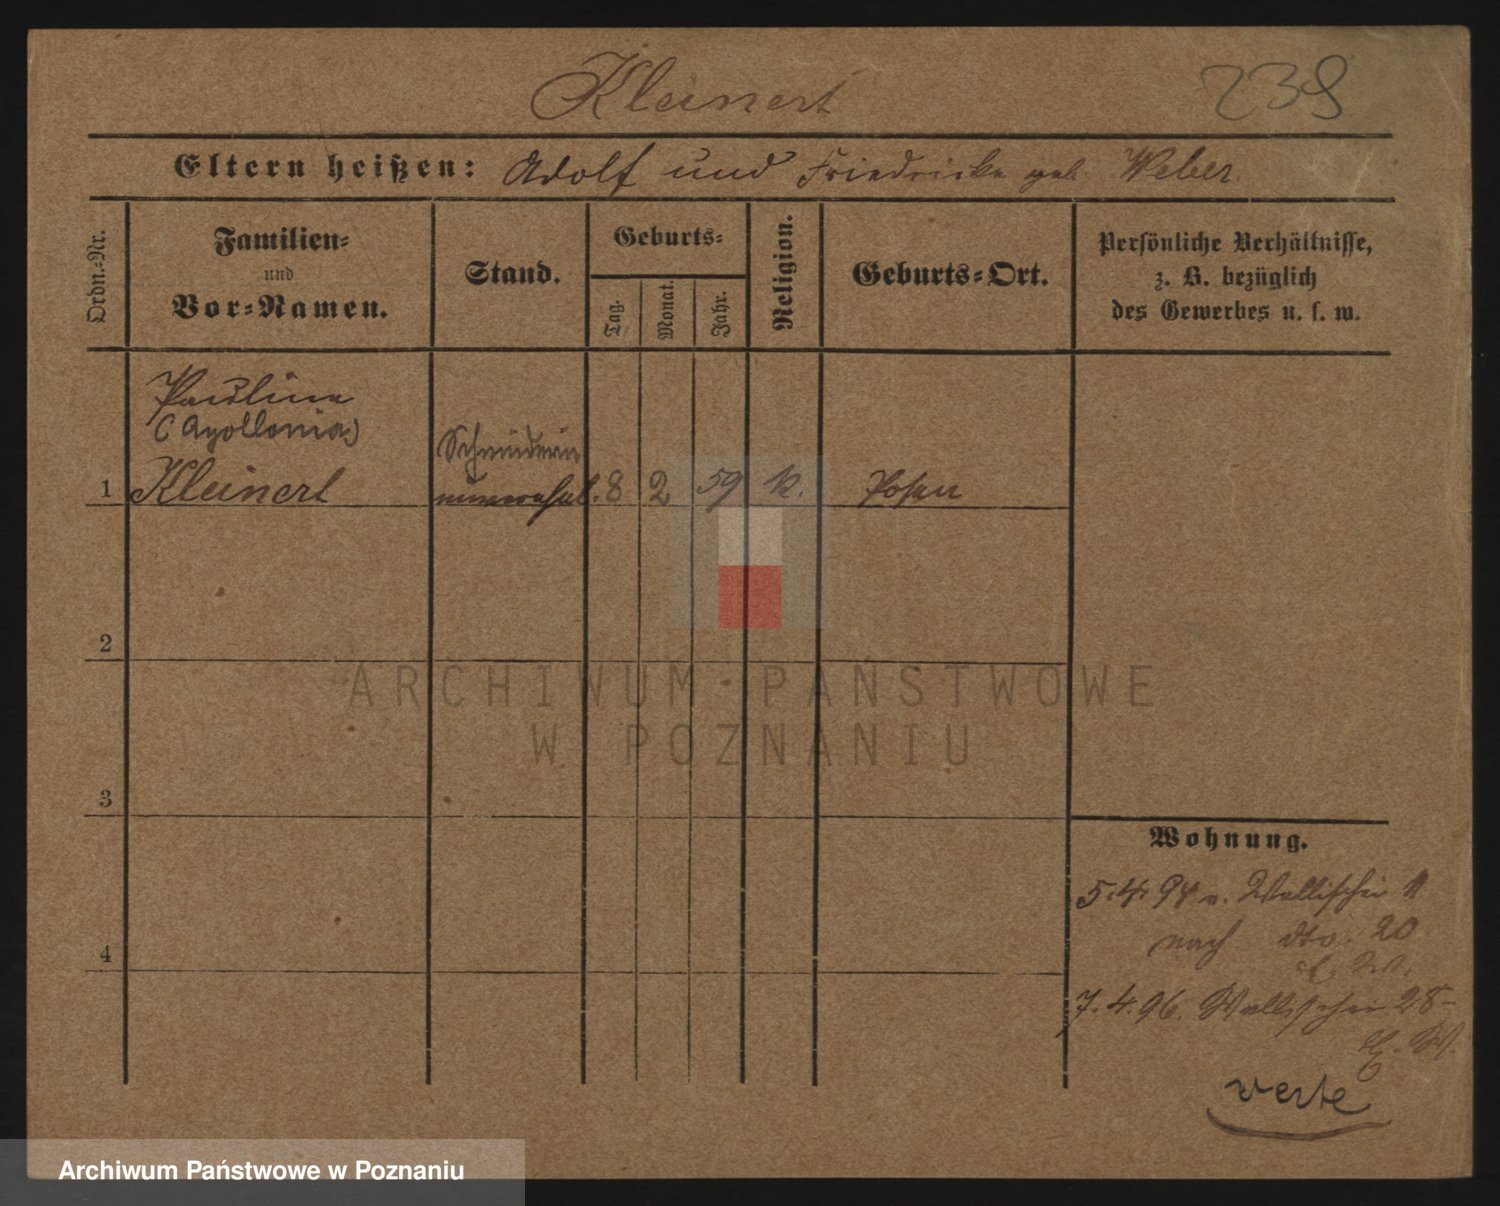 Kleinert 238
Eltern heißen: Adolf und Friedricke geb. Weber
Ordn.-Nr.
Familien-
und
Vor-Namen.
Stand.
Geburts-
Tag.
Monat.
Jahr.
Religion.
Geburts-Ort.
Persönliche Verhältnisse,
z. B. bezüglich
des Gewerbes u. s. w.
Pauline
(Apollonia)
Schneiderin
1 Kleinert unverehel. 8 2 59 k. Posen
2
ARCHIWUM PAŃSTWOWE
W POZNANIU
3
Wohnung.
5.4.94 v. Wallischei 11
nach dto. 20
4
7.4.96. Wallischei 28
verte
Archiwum Państwowe w Poznaniu